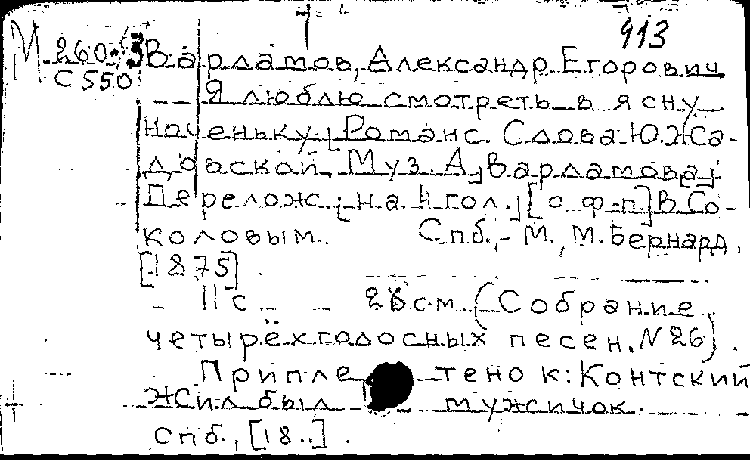 913
М 260/3 Варламов, Александр Егорович
С 550
Я люблю смотреть в ясну
ноченьку; Романс. Слова Ю. Жа-
довской, Муз. А. Варламова;
Перелож. на 4 гол., [с ф-п] В. Со-
коловым. Спб., - М., М. Бернард,
[1875].
11 с 28 см. (Собрание
четырёхголосных песен. N 26).
Приплетено к: Контский
Жил был мужичок.
Спб., [18..].